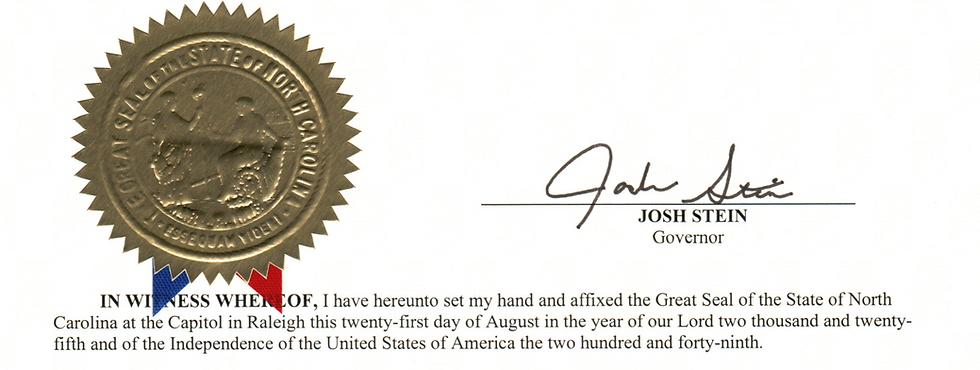 THE GREAT SEAL OF THE STATE OF NORTH CAROLINA
ESSE QUAM VIDERI
Josh Stein
JOSH STEIN
Governor
IN WITNESS WHEREOF, I have hereunto set my hand and affixed the Great Seal of the State of North
Carolina at the Capitol in Raleigh this twenty-first day of August in the year of our Lord two thousand and twenty-
fifth and of the Independence of the United States of America the two hundred and forty-ninth.